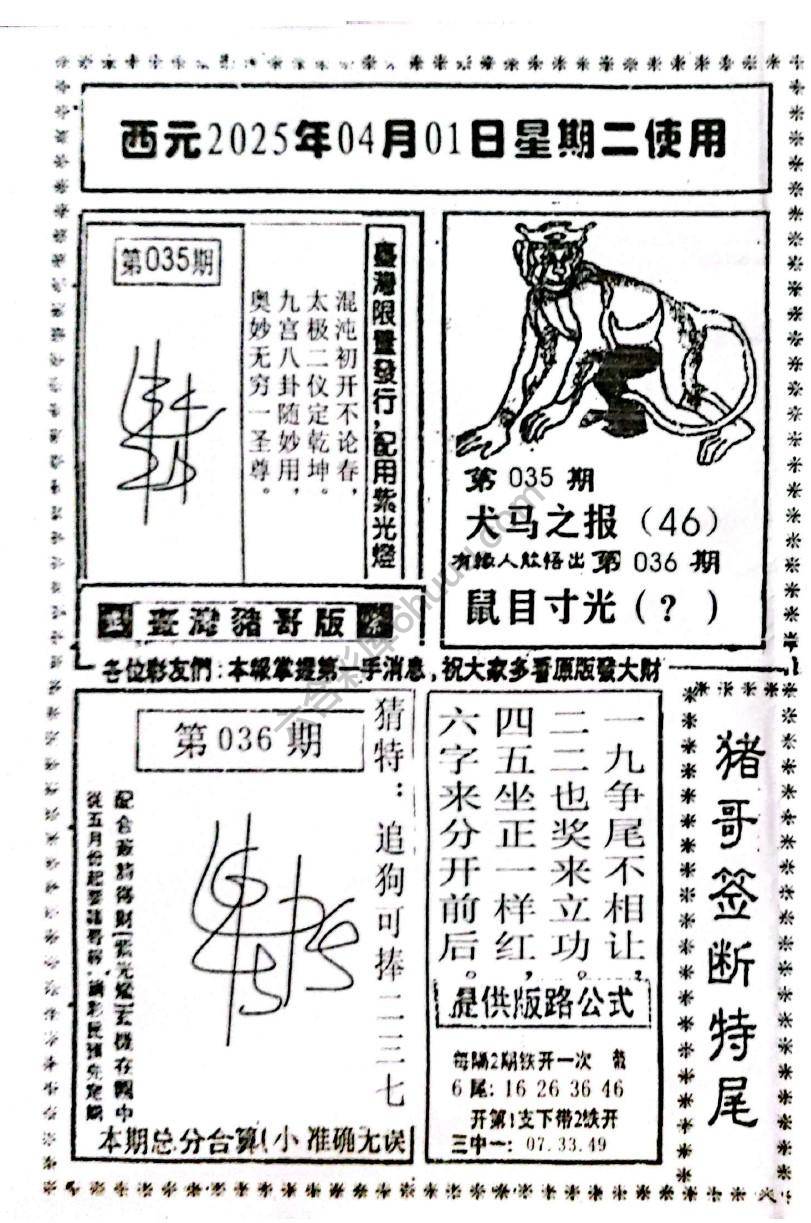 西元2025年04月01日星期二使用
第035期
混沌初开不论春，
太极二仪定乾坤。
九宫八卦随妙用，
奥妙无穷一圣尊。
臺灣限量發行，配用紫光燈
臺灣豬哥版
第 035 期
犬马之报（46）
有缘人能悟出 第 036 期
鼠目寸光（？）
各位彩友們：本報掌握第一手消息，祝大家多看原版發大財
第 036 期
猜特：追狗可捧二三七
從五月份起要豬哥
本期总分合算(小 准确无误
一九争尾不相让，
二二也奖来立功。
四五坐正一样红，
六字来分开前后。
提供版路公式
每隔2期铁开一次
6 尾: 16 26 36 46
开第1支下带2铁开
三中一: 07.33.49
猪哥签断特尾
六合彩库ohuuu.com